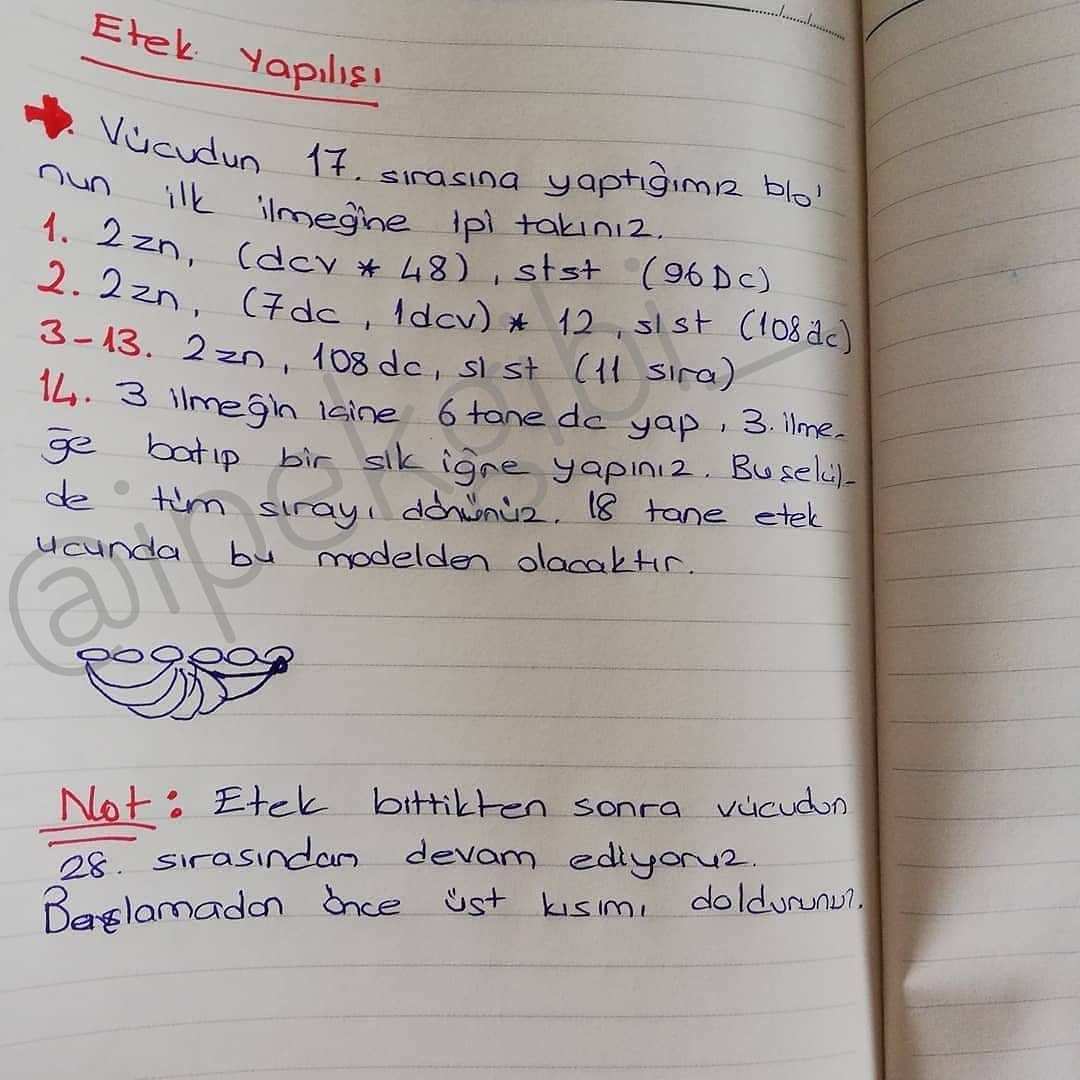 Etek Yapılışı
Vücudun 17. sırasına yaptığımız blo'
nun ilk ilmeğine ipi takınız.
1. 2zn, (dcv * 48), slst (96 Dc)
2. 2zn, (7dc, 1dcv) * 12, slst (108 dc)
3-13. 2zn, 108 dc, slst (11 sıra)
14. 3 ilmeğin içine 6 tane dc yap, 3. ilme-
ğe batıp bir sık iğne yapınız. Bu şekil-
de tüm sırayı dönünüz. 18 tane etek
ucunda bu modelden olacaktır.
@ipekgibi_
Not: Etek bittikten sonra vücudun
28. sırasından devam ediyoruz.
Başlamadan önce üst kısımı doldurunuz.